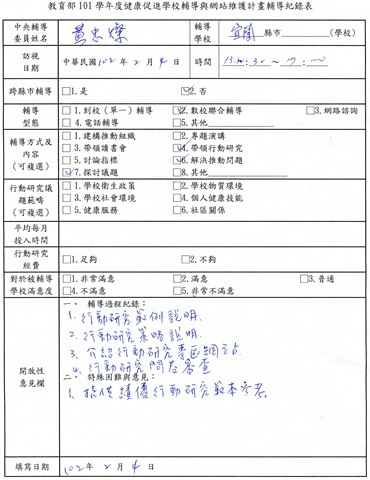 教育部 101 學年度健康促進學校輔導與網站維護計畫輔導紀錄表
中央輔導委員姓名 黃忠燦 輔導學校 宜蘭 縣市 (學校)
訪視日期 中華民國 102 年 2 月 4 日 時間
跨縣市輔導 □1.是 ☑2.否
輔導型態 □1.到校(單一)輔導 ☑2.數校聯合輔導 □3.網路訪談
□4.電話輔導 □5.其他
輔導方式及內容(可複選) □1.建構推動組織 □2.專題演講
□3.帶領讀書會 ☑4.帶領行動研究
□5.討論指標 ☑6.解決推動問題
☑7.探討議題 □8.其他
行動研究議題範疇(可複選) □1.學校衛生政策 □2.學校物質環境
□3.學校社會環境 □4.個人健康技能
□5.健康服務 □6.社區關係
平均每月投入時間
行動研究經費 □1.足夠 □2.不夠
對於被輔導學校滿意度 □1.非常滿意 □2.滿意 □3.普通
□4.不滿意 □5.非常不滿意
開放性意見欄
一、 輔導過程紀錄:
1. 行動研究範例說明.
2. 行動研究策略說明.
3. 介紹行動研究專區網站
4. 行動研究問卷審查
二、 特殊困難與意見:
1. 提供績優行動研究範本參考.
填寫日期 102 年 2 月 4 日